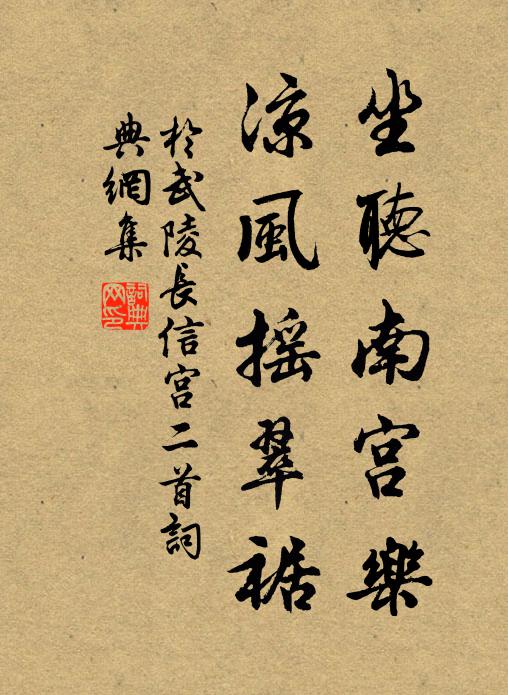 坐聽南宮樂
涼風搖翠裾
於武陵長信宮二首詞
典網集
詞典
网印